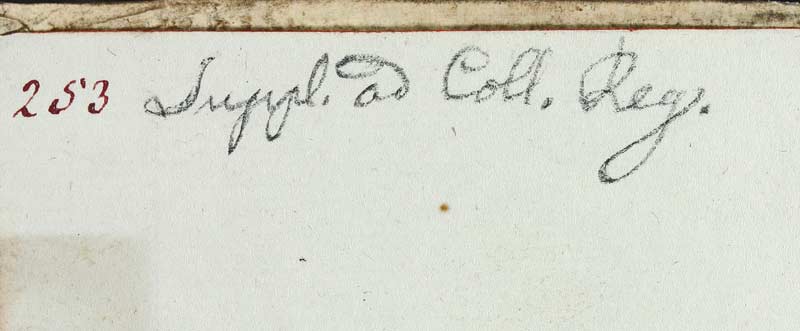 253 Suppl. ad Coll. Reg.